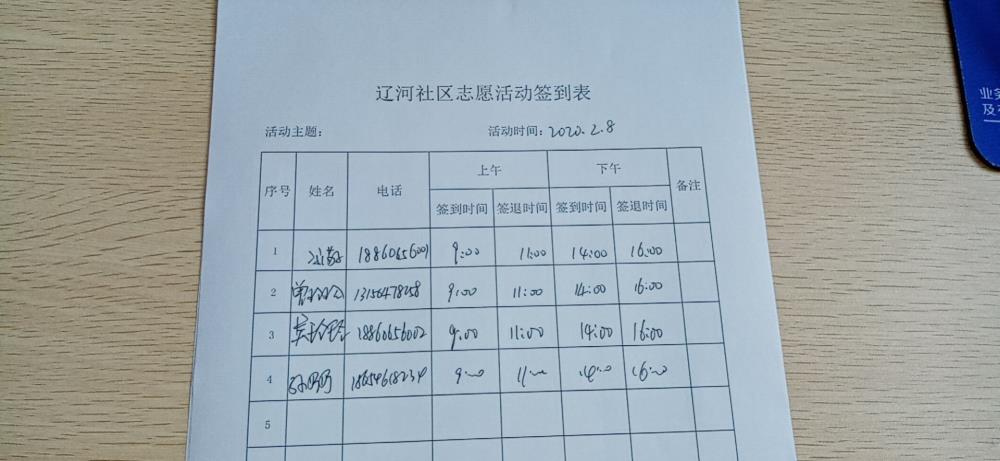 辽河社区志愿活动签到表
活动主题: 活动时间: 2020.2.8
序号 姓名 电话 上午 下午 备注
签到时间 签退时间 签到时间 签退时间
1 18860656001 9:00 11:00 14:00 16:00
2 13156478258 9:00 11:00 14:00 16:00
3 18860656002 9:00 11:00 14:00 16:00
4 18654618234 9:00 11:00 14:00 16:00
5
业务